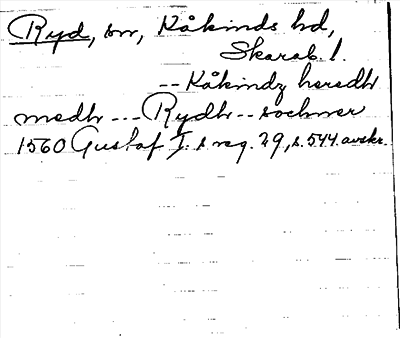 Ryd, sn, Kåkinds hd,
Skarab. l.
-- Kåkindz heredh
medh --- Rydh -- sochner
1560 Gustaf I:s reg. 29, s. 544. avskr.